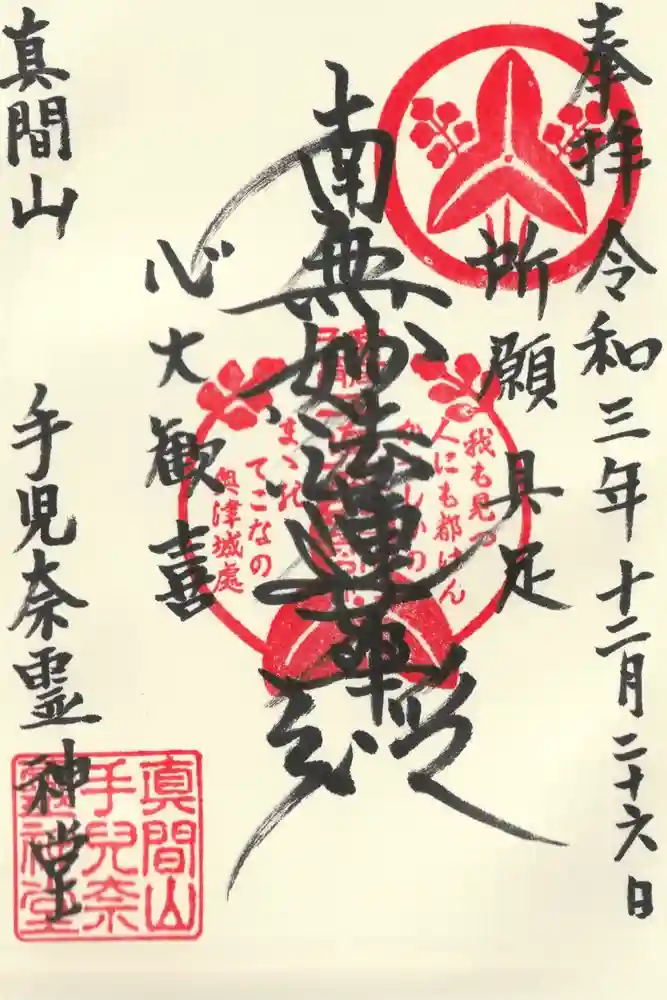 奉拝 令和三年十二月二十六日
所願具足
南無妙法蓮華経
心大歓喜
真間山 手児奈霊神堂
我も見つ
人にも都げん
かつしかの
まゝの
てこなの
奥津城處
真間山
手兒奈
靈神堂